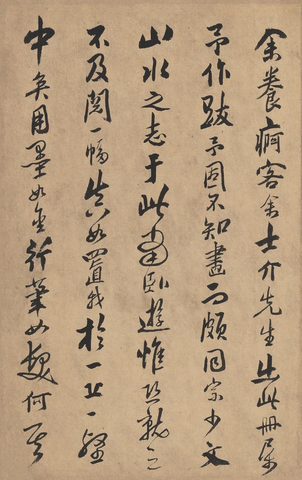 余養痾客舍士介先生出此冊屬
予作跋予固不知畫而頗同宗少文
山水之志于此當臥遊惟恐就之
不及閱一幅真如置我於一丘一壑
中矣用墨如金行筆如